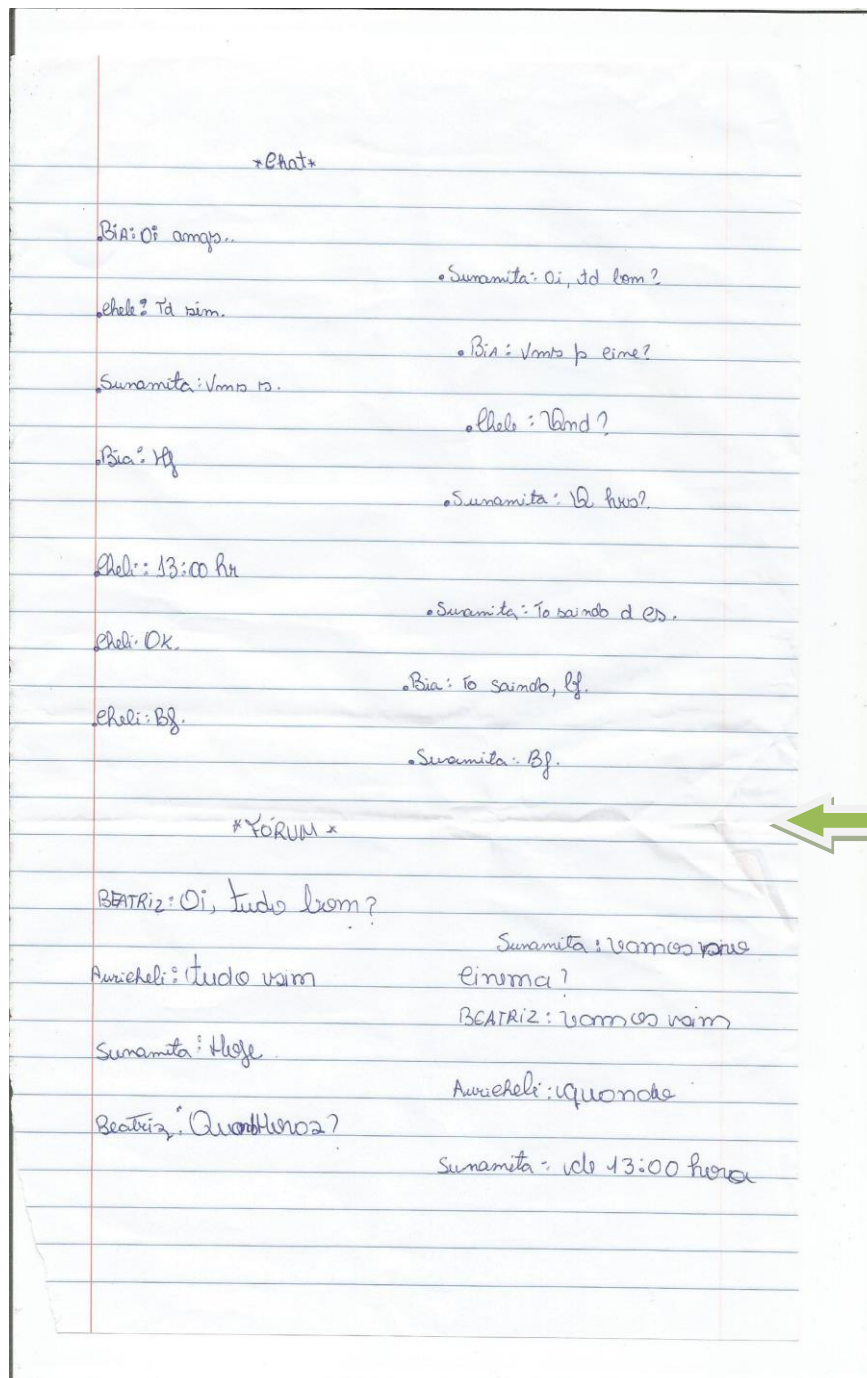 *Chat*
.BiA: Oi amgs..
.Sunamita: Oi, td bom?
.Cheli: Td sim.
.BiA: Vms p cine?
.Sunamita: Vms s.
.Cheli: Qnd?
.Bia: Hj
.Sunamita: Q hrs?
.Cheli: 13:00 hr
.Sunamita: To saindo d cs.
Cheli: OK.
.Bia: To saindo, bj.
.Cheli: Bj.
.Sunamita: Bj.
*FÓRUM*
BEATRiZ: Oi, tudo bom?
Sunamita: vamos
Auricheli: tudo sim
Cinema?
BEATRiZ: vamos sim
Sunamita: Hoje
Auricheli: quando
Beatriz:
Sunamita: de 13:00 hora